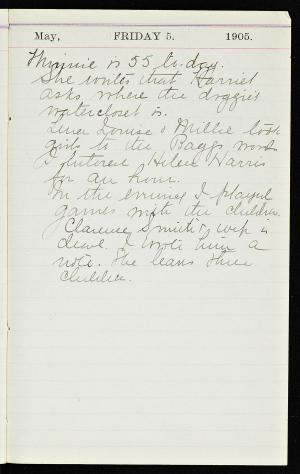 May, FRIDAY 5. 1905.
Minnie is 55 to-day.
She writes that Harriet
asks where the doggie's
watercloset is.
Louise & Millie took
girls to the Baggs woods
I tutored Helen Harris
for an hour.
In the evening I played
games with the children.
Clarence Smith's wife is
dead. I wrote him a
note. She leaves three
children.